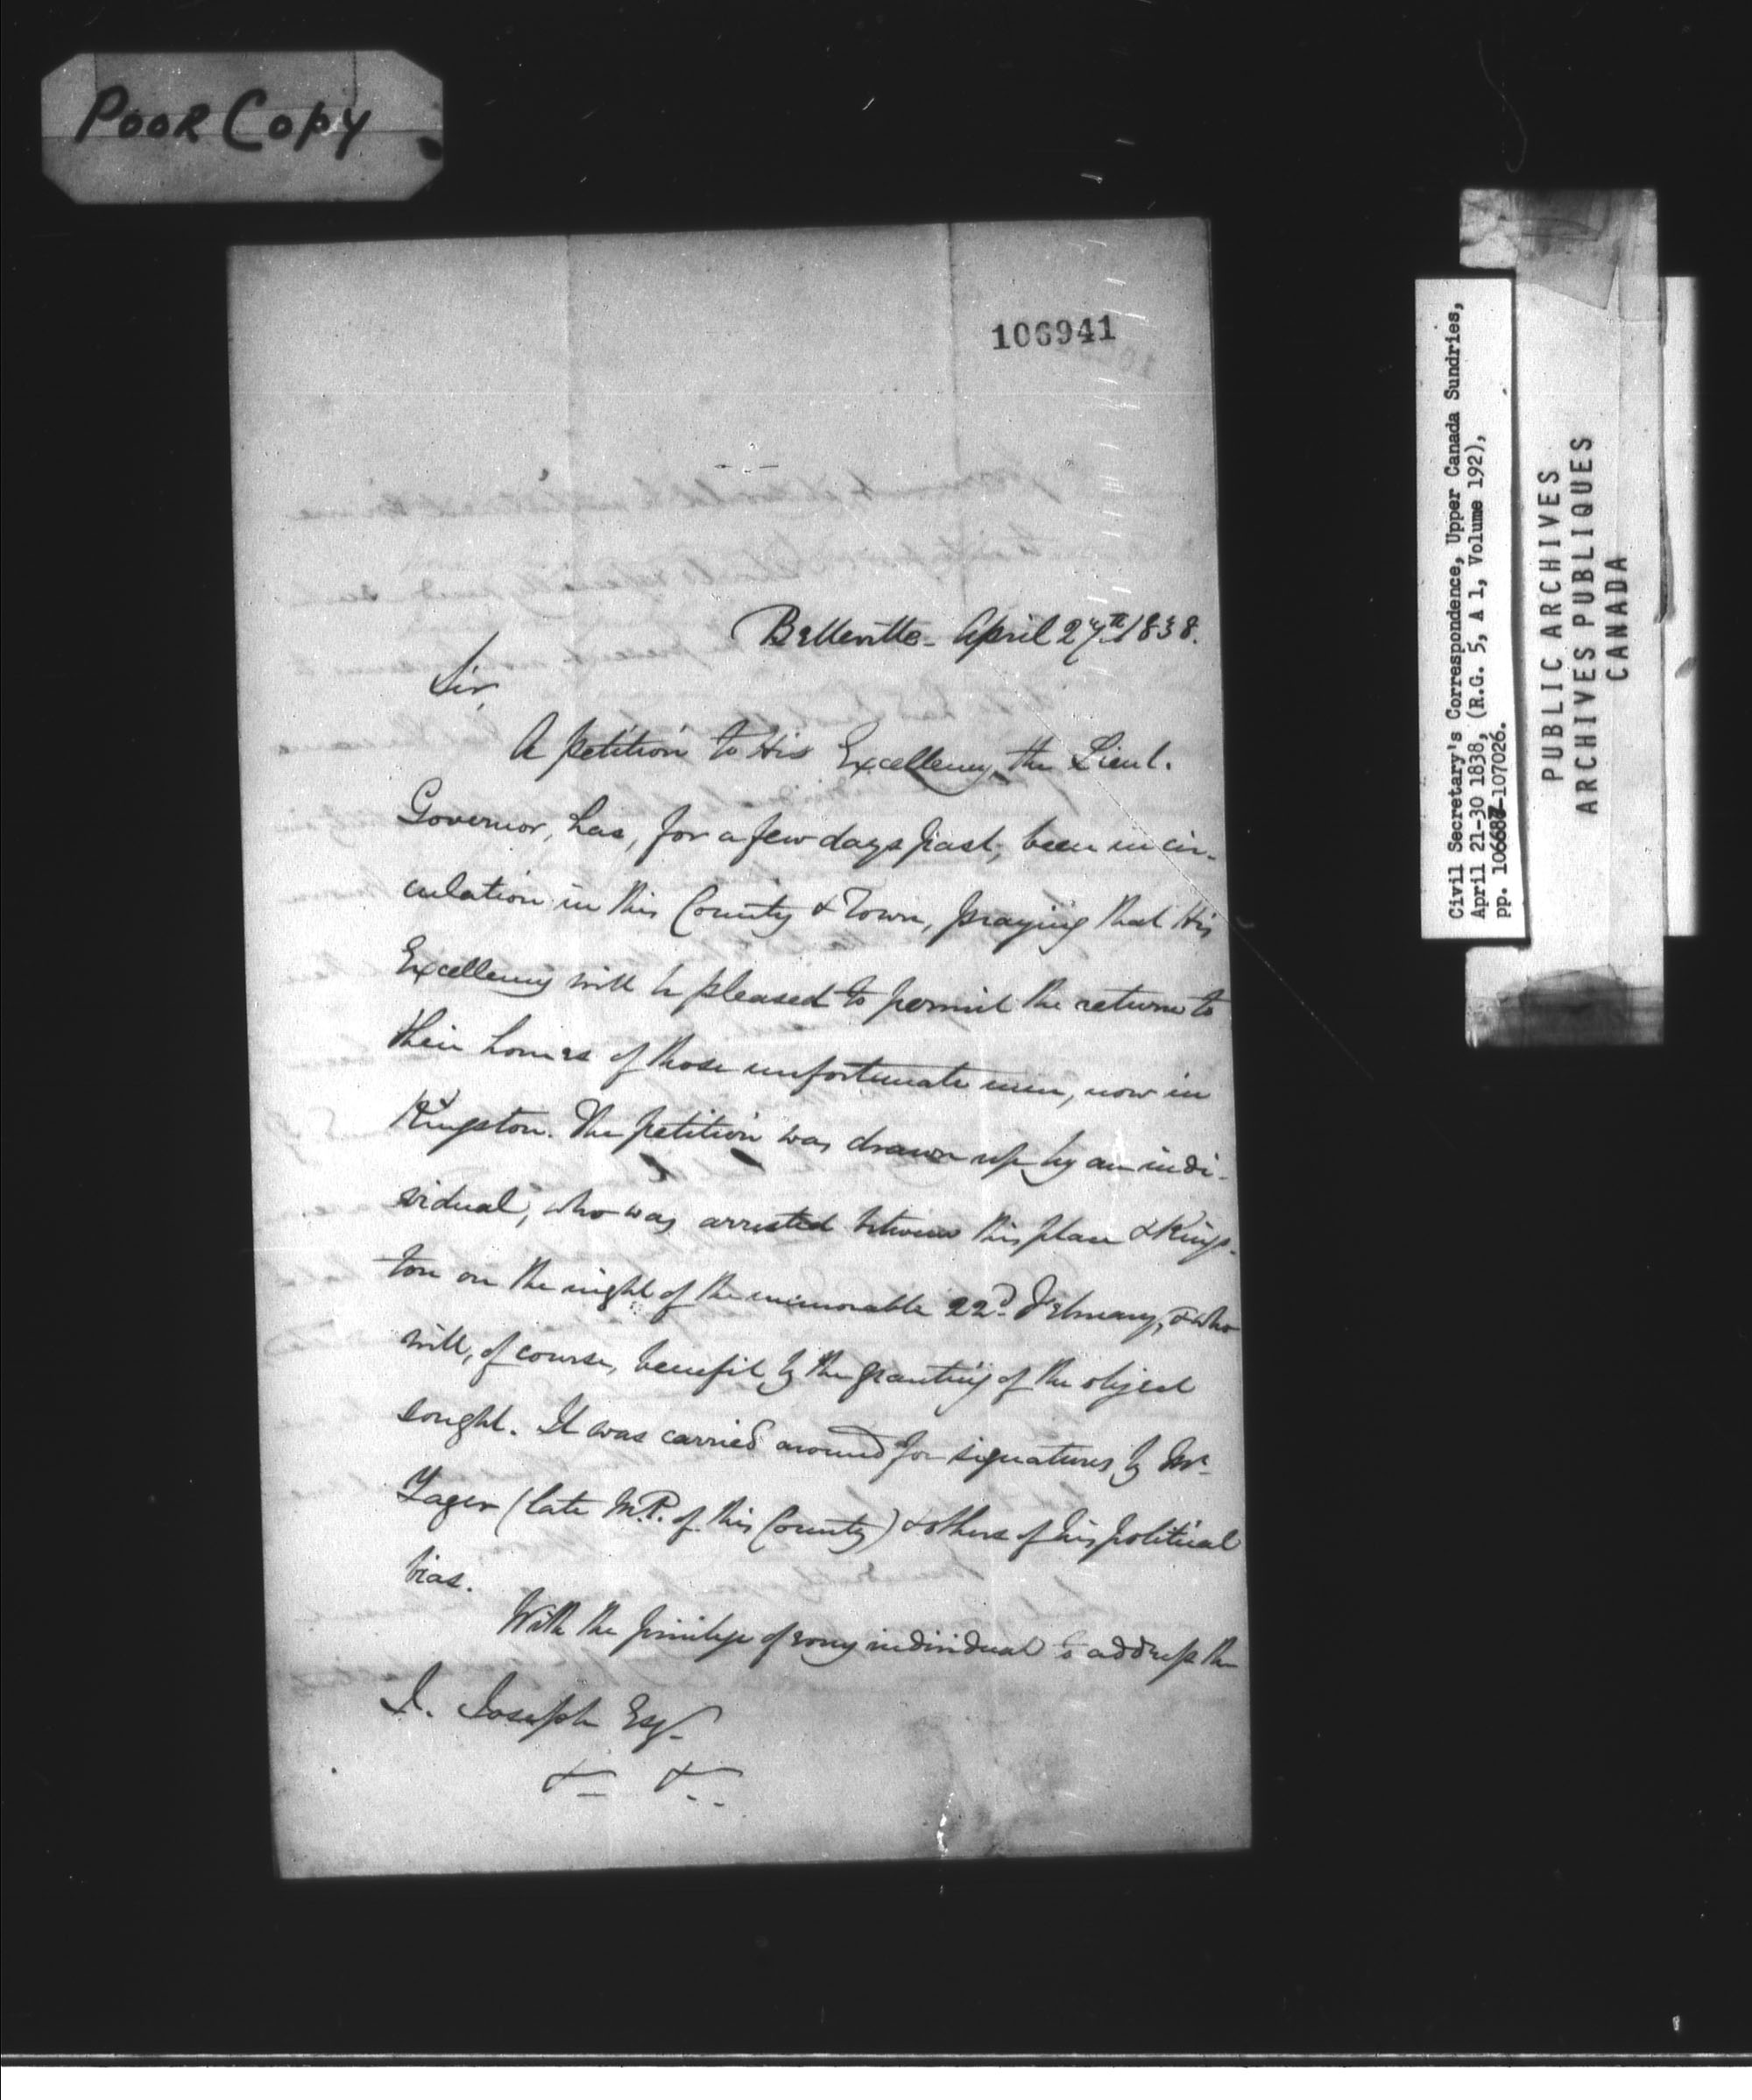 POOR COPY
106941
Belleville - April 27th 1838.
Sir,
A petition to His Excellency, the Lieut.
Governor, has, for a few days past, been in cir-
culation in this County & Town, praying that His
Excellency will be pleased to permit the return to
their homes of those unfortunate men, now in
Kingston. The petition was drawn up by an indi-
vidual, who was arrested between this place & Kings-
ton on the night of the memorable 22d. February, & who
will, of course, benefit by the granting of the object
sought. It was carried around for signatures by Mr.
Yager (late M.P. of this County) & others of his political
bias.
With the privilege of every individual to address the
J. Joseph Esqr.
&c &c
Civil Secretary's Correspondence, Upper Canada Sundries,
April 21-30 1838, (R.G. 5, A 1, Volume 192),
pp. 106687-107026.
PUBLIC ARCHIVES
ARCHIVES PUBLIQUES
CANADA